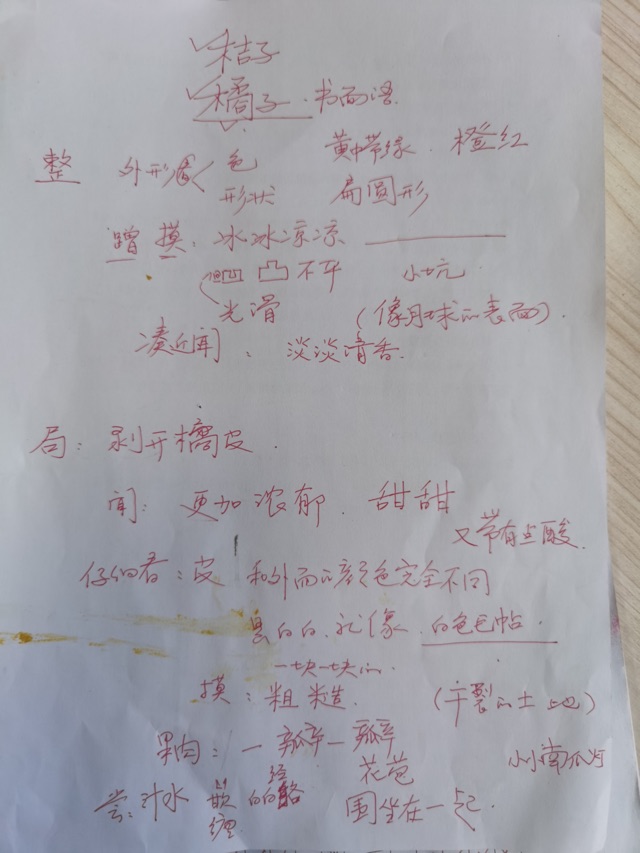 桔子
橘子 书面语
整 外形 色 黄中带绿 橙红
形状 扁圆形
蹭 摸 冰冰凉凉
凹凸不平 小坑
光滑 (像月球的表面)
凑近闻: 淡淡清香
局: 剥开橘皮
闻: 更加浓郁 甜甜
又带有点酸
仔细看: 皮 和外面的颜色完全不同
是白的, 就像 白色毛帖
一块一块的
摸: 粗糙 (干裂的土地)
果肉: 一瓣一瓣
花苞 小小南瓜灯
尝: 汁水 的 经络 围坐在一起
缠